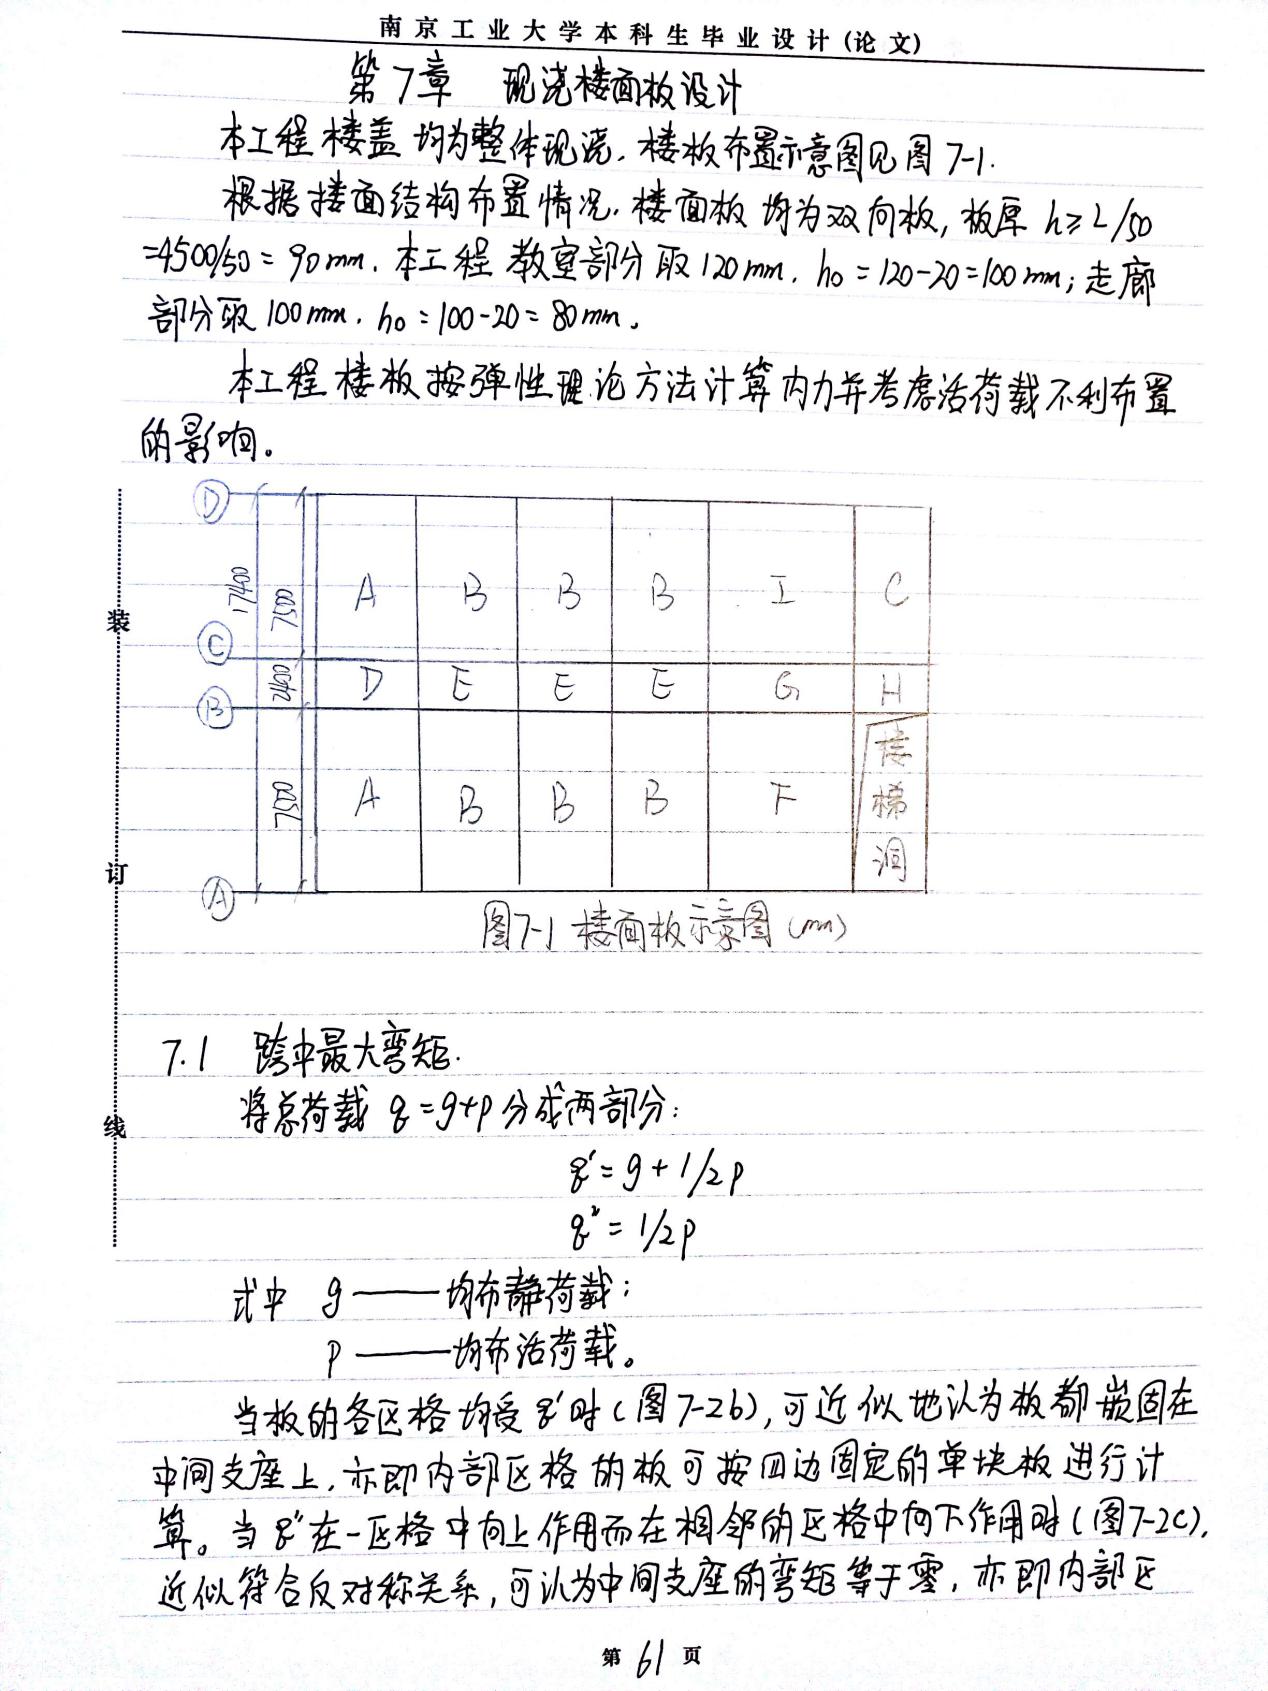 南京工业大学本科生毕业设计(论文)
第7章 现浇楼面板设计
本工程楼盖均为整体现浇.楼板布置示意图见图7-1.
根据楼面结构布置情况.楼面板均为双向板,板厚 h≥L/50
=4500/50=90mm.本工程教室部分取120mm.h0=120-20=100mm;走廊
部分取100mm.h0=100-20=80mm。
本工程楼板按弹性理论方法计算内力并考虑活荷载不利布置
的影响。
D
A B B B I C
17400 7500
C
2400
D E E E G H
B
楼
A B B B F 梯
7500
洞
A
图7-1 楼面板示意图(mm)
7.1 跨中最大弯矩.
将总荷载 q=g+p分成两部分:
q'=g+1/2p
q"=1/2p
式中 g——均布静荷载;
p——均布活荷载。
当板的各区格均受q'时(图7-2b),可近似地认为板都嵌固在
中间支座上,亦即内部区格的板可按四边固定的单块板进行计
算。当q"在一区格中向上作用而在相邻的区格中向下作用时(图7-2c),
近似符合反对称关系,可认为中间支座的弯矩等于零,亦即内部区
装
订
线
第61页